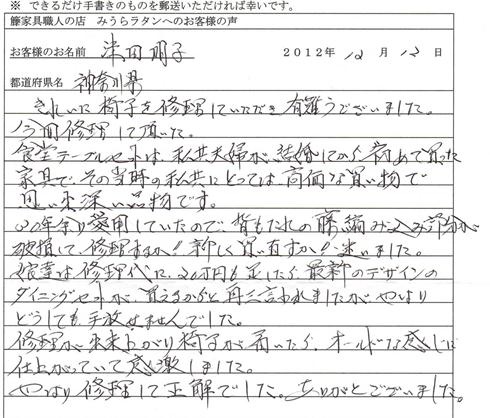 ※ できるだけ手書きのものを郵送いただければ幸いです。
籐家具職人の店 みうらラタンへのお客様の声
お客様のお名前 津田朋子 2012年 12 月 12 日
都道府県名 神奈川県
きれいに椅子を修理していただき有難うございました。
今回修理して頂いた。
食堂テーブルセットは、私共夫婦が結婚してから初めて買った
家具で、その当時の私共にとっては高価な買い物で
思い出深い品物です。
20年余り愛用していたので、背もたれの籐編み込み部分が
破損して、修理するか!新しく買い直すか!迷いました。
娘達は修理代に、20万円も足したら最新のデザインの
ダイニングセットが、買えるからと再三言われましたがやはり
どうしても手放せませんでした。
修理が出来上がり椅子が着いたら、オールドな感じに
仕上がっていて感激しました。
やはり修理して正解でした。ありがとございました。